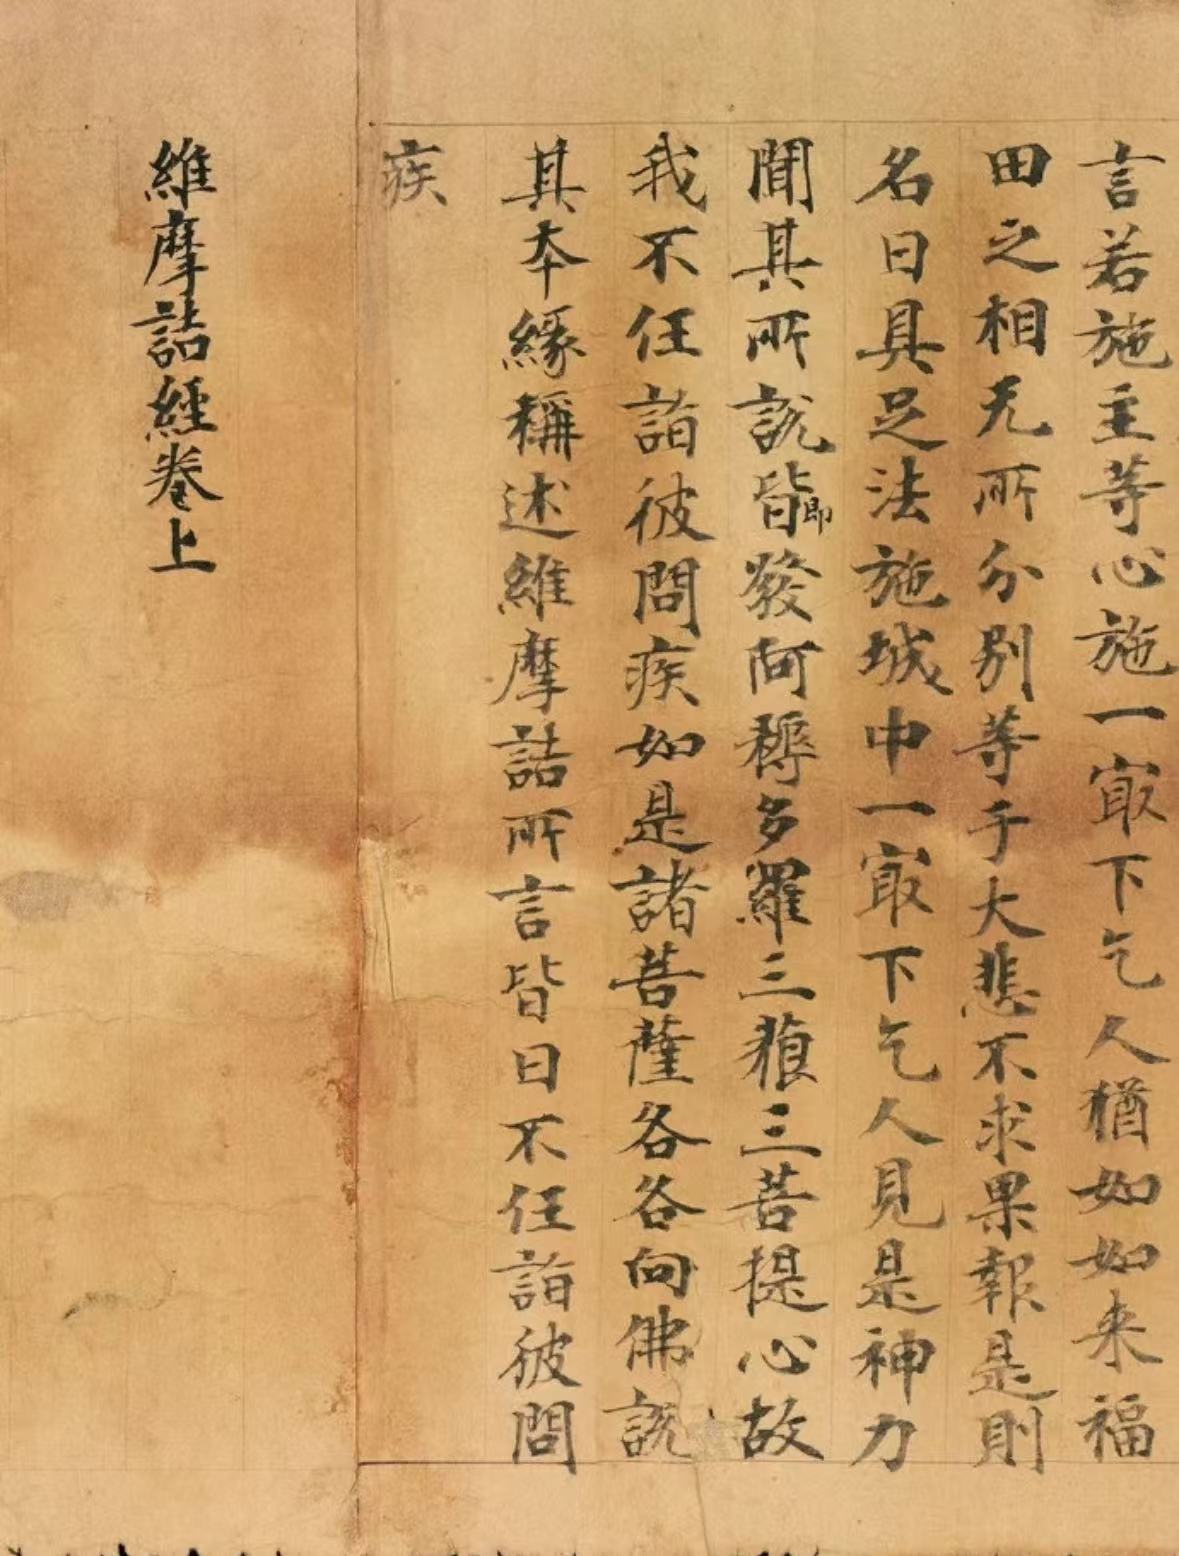 言若施主等心施一㝡下乞人猶如如来福
田之相无所分别等于大悲不求果報是則
名曰具足法施城中一㝡下乞人見是神力
聞其所說皆即發阿耨多羅三藐三菩提心故
我不任詣彼問疾如是諸菩薩各各向佛說
其夲緣稱述維摩詰所言皆曰不任詣彼問
疾
維摩詰經卷上